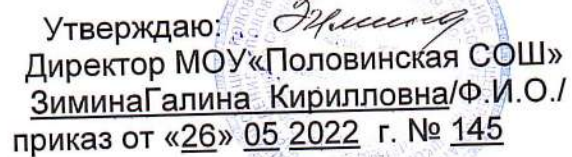 Утверждаю:
Директор МОУ«Половинская СОШ»
ЗиминаГалина Кирилловна/Ф.И.О./
приказ от «26» 05 2022 г. № 145